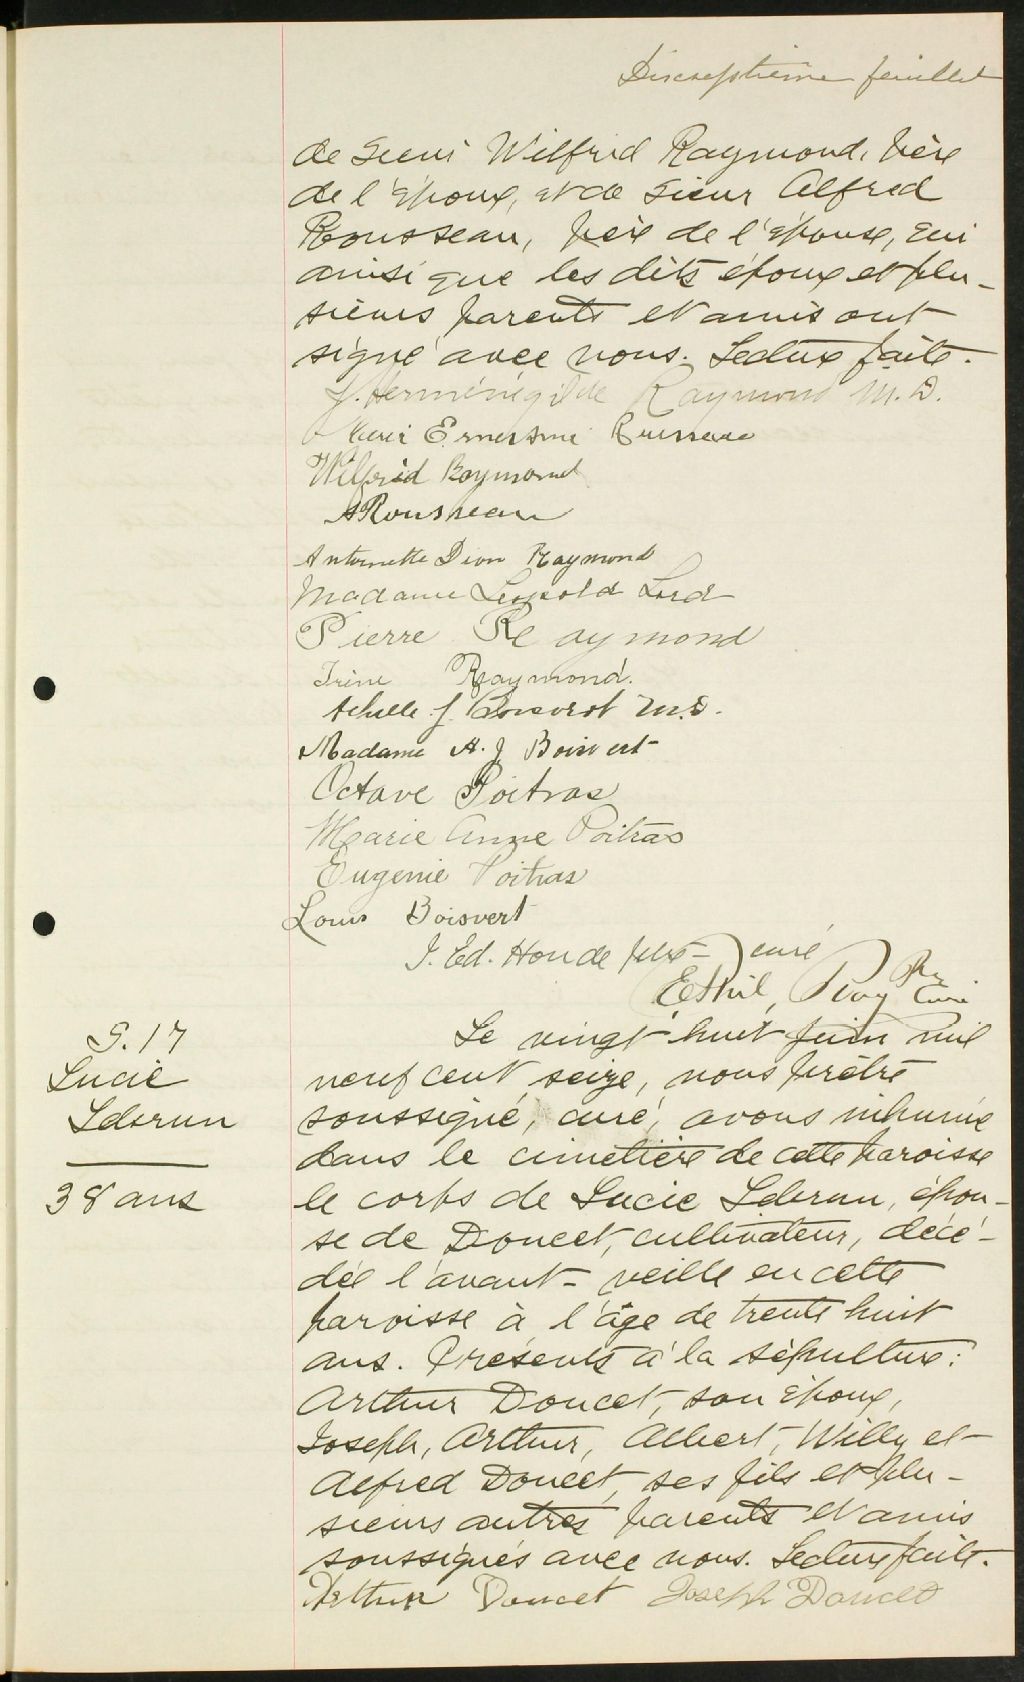 Dixseptième feuillet
de Sieur Wilfrid Raymond, père
de l'époux, et de Sieur Alfred
Rousseau, père de l'épouse, qui
ainsi que les dits époux et plu-
sieurs parents et amis ont
signé avec nous. Lecture faite.
J. Herménégilde Raymond M.D.
Marie Ernestine Rousseau
Wilfrid Raymond
A Rousseau
Antoinette Dion Raymond
Madame Léopold Lord
Pierre Raymond
Irène Raymond.
Achille J. Boisvert M.D.
Madame A. J Boisvert
Octave Poitras
Marie Anne Poitras
Eugenie Poitras
Louis Boisvert
J. Ed. Houde ptre curé
Ptre Curé
S. 17
Lucie
38 ans
Le vingt-huit juin mil
neuf cent seize, nous prêtre
soussigné, curé, avons inhumé
dans le cimetière de cette paroisse
le corps de Lucie épou-
se de Doucet, cultivateur, décé-
dée l'avant-veille en cette
paroisse à l'âge de trente huit
ans. Présents à la sépulture:
Arthur Doucet, son époux,
Joseph, Arthur, Albert, Willy et
Alfred Doucet, ses fils et plu-
sieurs autres parents et amis
soussignés avec nous. Lecture faite.
Arthur Doucet Joseph Doucet